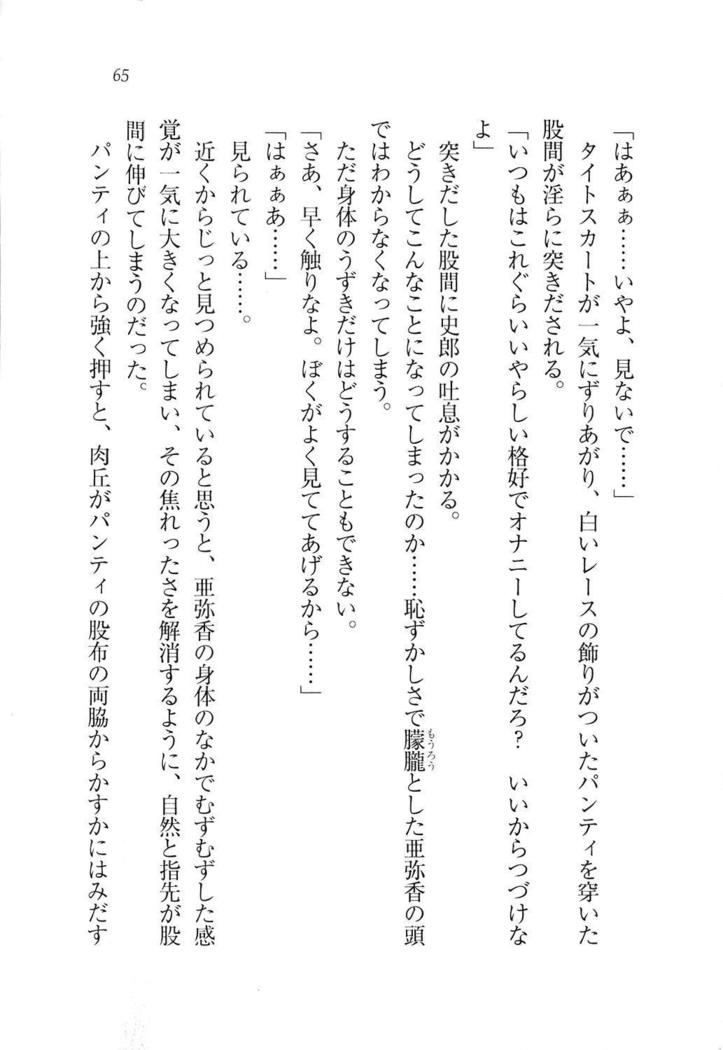 65
「はあぁぁ……いやよ、見ないで……」
タイトスカートが一気にずりあがり、白いレースの飾りがついたパンティを穿いた
股間が淫らに突きだされる。
「いつもはこれぐらいいやらしい格好でオナニーしてるんだろ？　いいからつづけな
よ」
突きだした股間に史郎の吐息がかかる。
どうしてこんなことになってしまったのか……恥ずかしさで朦朧とした亜弥香の頭
もうろう
ではわからなくなってしまう。
ただ身体のうずきだけはどうすることもできない。
「さあ、早く触りなよ。ぼくがよく見ててあげるから……」
「はぁぁあ……」
見られている……。
近くからじっと見つめられていると思うと、亜弥香の身体のなかでむずむずした感
覚が一気に大きくなってしまい、その焦れったさを解消するように、自然と指先が股
間に伸びてしまうのだった。
パンティの上から強く押すと、肉丘がパンティの股布の両脇からかすかにはみだす